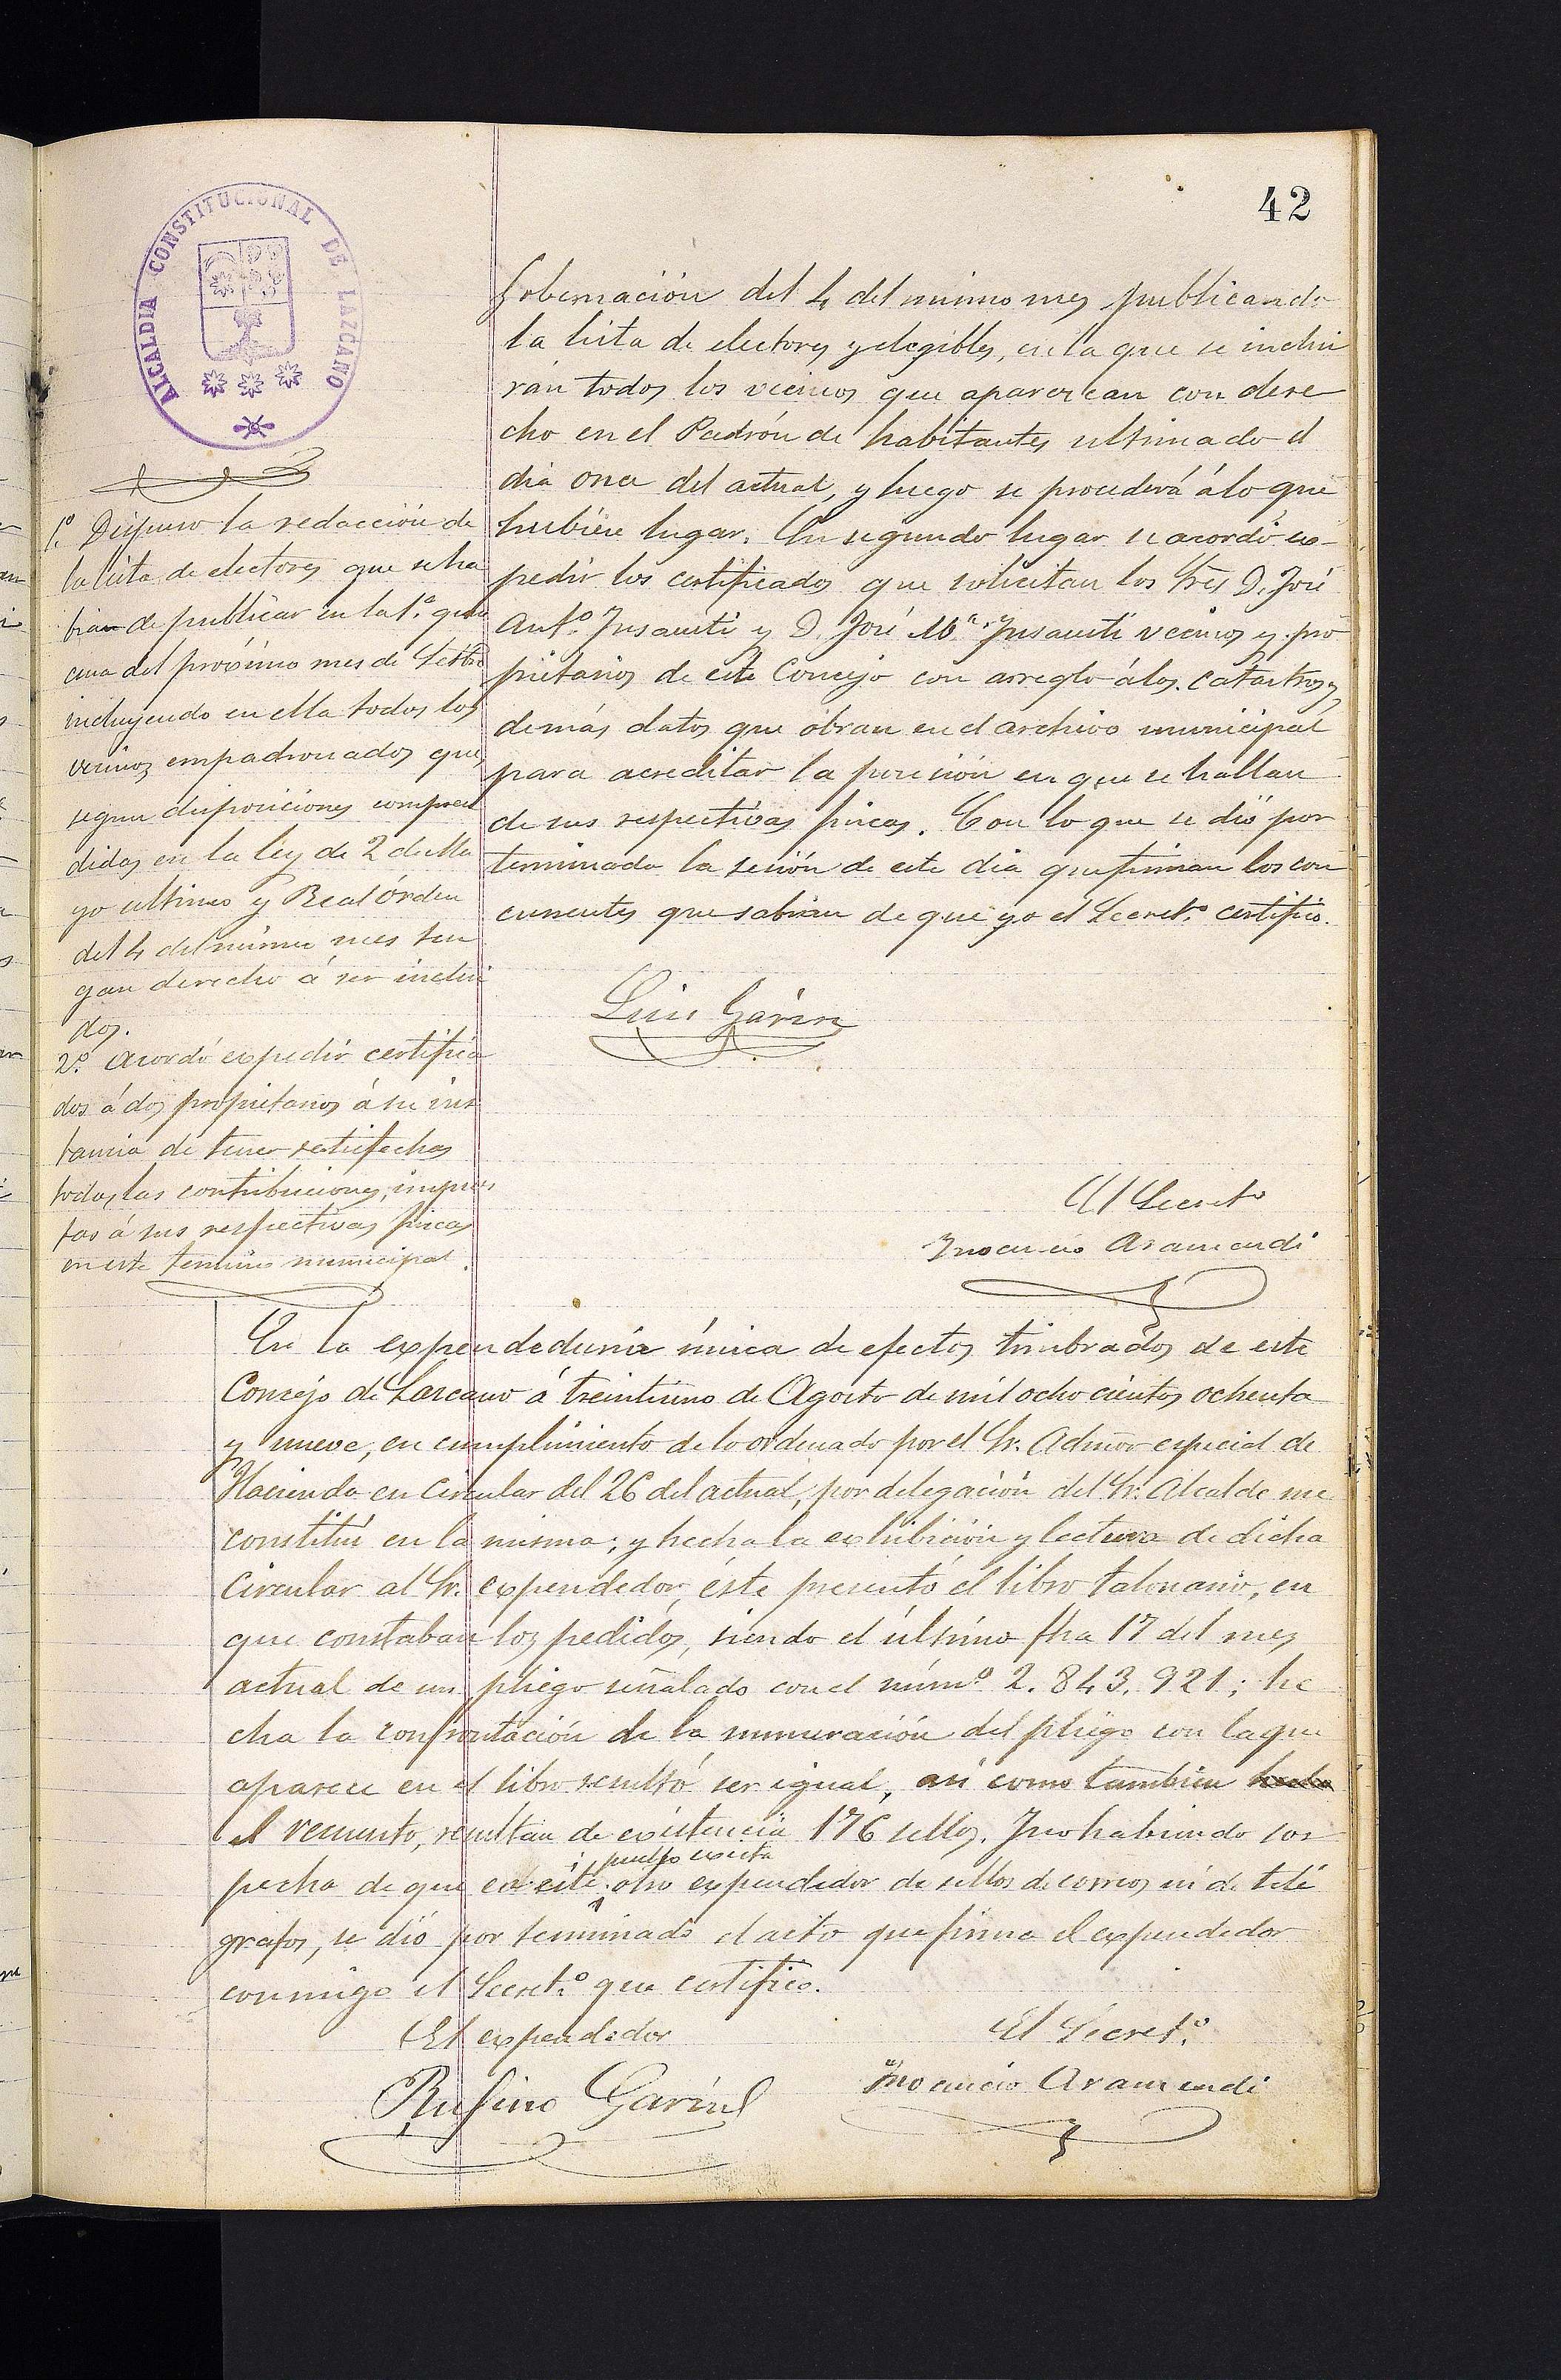 42
ALCALDIA CONSTITUCIONAL DE LAZCANO
Gobernación del 4 del mismo mes publicando
la lista de electores y elegibles, en la que se inclui
rán todos los vecinos que aparezcan con dere
cho en el Padrón de habitantes ultimado el
dia once del actual, y luego se procederá á lo que
hubiere lugar. En segundo lugar se acordó ex-
pedir los certificados que solicitan los Sres D. José
Antº Insausti y D. José Mª Insausti vecinos y pro
pietarios de este Concejo con arreglo á los catastros y
demás datos que obran en el archivo municipal
para acreditar la posesión en que se hallan
de sus respectivas fincas. Con lo que se dió por
terminada la sesión de este dia que firman los con
currentes que sabian de que yo el Secretº certifico.
Luis Garin
El Secretº
Inocencio Aramendi
1º Dispuso la redacción de
la lista de electores que se ha
bian de publicar en la 1ª quin
cena del próximo mes de Setbre
incluyendo en ella todos los
vecinos empadronados que
segun disposiciones compren
didas en la ley de 2 de Ma
yo ultimo y Real órden
del 4 del mismo mes ten
gan derecho á ser inclui
dos.
2º Acordó expedir certifica
dos á dos propietarios á su ins
tancia de tener satisfechas
todas las contribuciones, impues
tas á sus respectivas fincas
en este termino municipal.
En la expendeduria única de efectos timbrados de este
Concejo de Lazcano á treintiuno de Agosto de mil ochocientos ochenta
y nueve, en cumplimiento de lo ordenado por el Sr. Admor especial de
Hacienda en circular del 26 del actual, por delegación del Sr. Alcalde me
constitui en la misma; y hecha la exhibición y lectura de dicha
Circular al Sr. expendedor, éste presentó el libro talonario, en
que constaban los pedidos, siendo el último fha 17 del mes
actual de un pliego señalado con el númº 2.843.921; he
cha la confrontación de la numeración del pliego con la que
aparece en el libro resultó ser igual, asi como tambien hecho
el recuento, resultan de existencia 176 sellos. Y no habiendo sos
pecha de que en este pueblo exista otro expendedor de sellos de correos ni de telé
grafos, se dió por terminado el acto que firma el expendedor
conmigo el Secretº que certifico.
El expendedor
Rufino Garin
El Secretº
Inocencio Aramendi